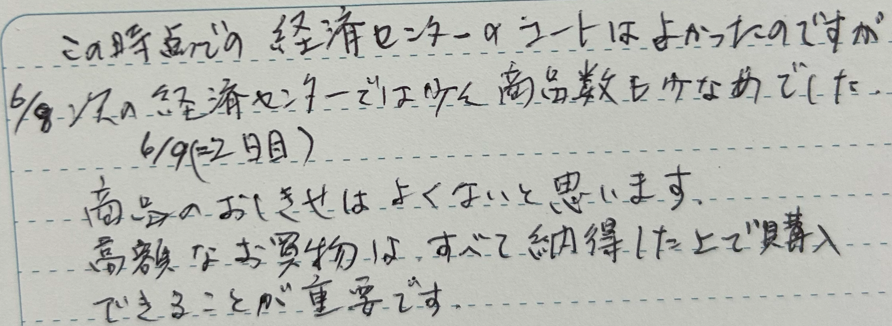 この時点での経済センターのコートはよかったのですが
6/8 次の経済センターでは少々商品数も少なめでした。
6/9(=2日目)
商品のおしきせはよくないと思います。
高額なお買物は、すべて納得した上で購入
できることが重要です。